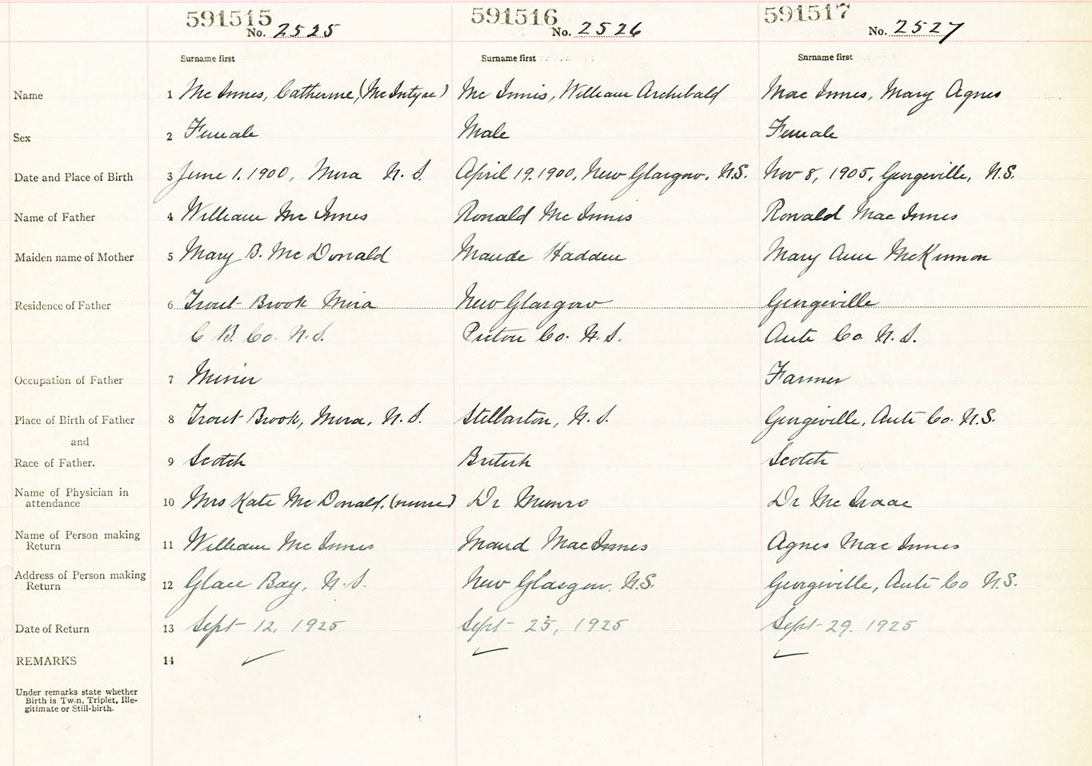 591515 591516 591517
No. 2525 No. 2526 No. 2527
Surname first Surname first Surname first
Name 1 Mc Innes, Catherine, (McIntyre) Mc Innis, William Archibald Mac Innes, Mary Agnes
Sex 2 Female Male Female
Date and Place of Birth 3 June 1. 1900, Mira N.S. April 19. 1900, New Glasgow, N.S. Nov 8, 1905, Georgeville, N.S.
Name of Father 4 William Mc Innes Ronald Mc Innis Ronald Mac Innes
Maiden name of Mother 5 Mary B. Mc Donald Maude Hadden Mary Ann McKinnon
Residence of Father 6 Trout Brook Mira New Glasgow Georgeville
C B. Co. N.S. Pictou Co. N.S. Ant Co N.S.
Occupation of Father 7 Miner Farmer
Place of Birth of Father 8 Trout Brook, Mira, N.S. Stellarton, N.S. Georgeville, Ant Co. N.S.
and
Race of Father. 9 Scotch British Scotch
Name of Physician in
attendance 10 Mrs Kate Mc Donald, (nurse) Dr Munro Dr Mc Isaac
Name of Person making
Return 11 William Mc Innes Maud MacInnes Agnes Mac Innes
Address of Person making
Return 12 Glace Bay, N.S. New Glasgow, N.S. Georgeville, Ant Co N.S.
Date of Return 13 Sept 12, 1925 Sept 25, 1925 Sept 29. 1925
REMARKS 14
Under remarks state whether
Birth is Twin, Triplet, Ille-
gitimate or Still-birth.